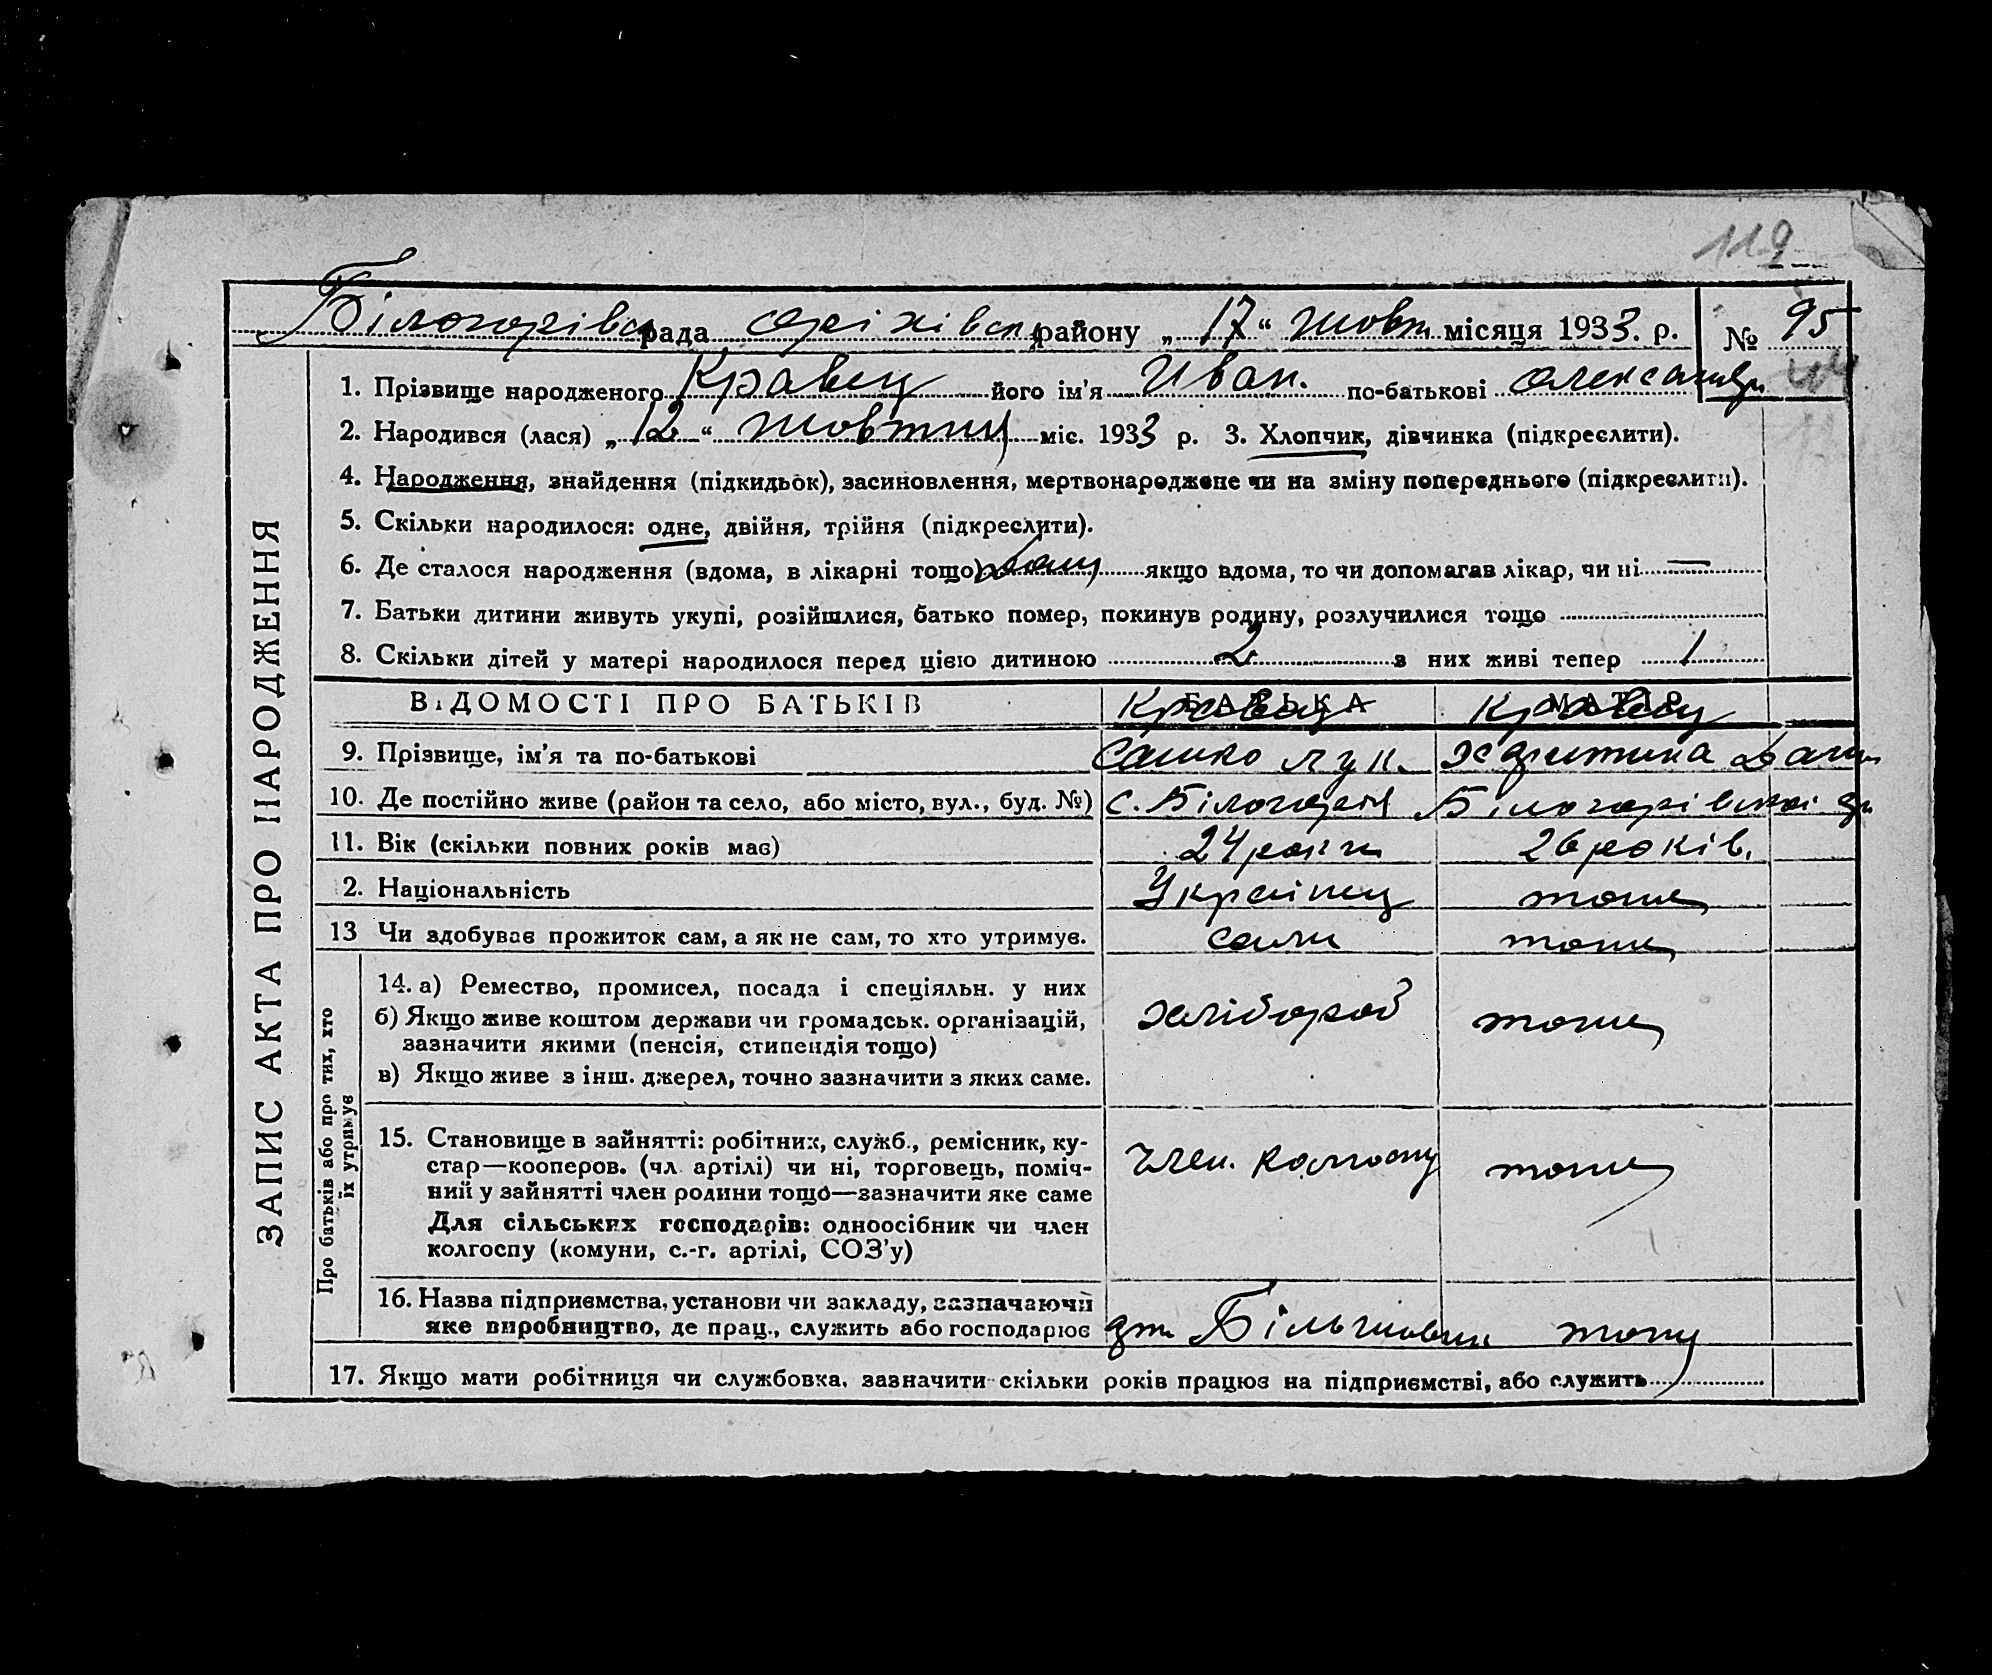 119
Білогорівск рада оріхівськ району „17“ жовт місяця 1933. р. № 95
1. Прізвище народженого Кравец його ім'я Иван. по-батькові Олександр
2. Народився (лася) „12“ жовтня міс. 1933 р. 3. Хлопчик, дівчинка (підкреслити).
4. Народження, знайдення (підкидьок), засиновлення, мертвонароджене чи на зміну попереднього (підкреслити).
5. Скільки народилося: одне, двійня, трійня (підкреслити).
6. Де сталося народження (вдома, в лікарні тощо) якщо вдома, то чи допомагав лікар, чи ні —
7. Батьки дитини живуть укупі, розійшлися, батько помер, покинув родину, розлучилися тощо
8. Скільки дітей у матері народилося перед цією дитиною 2 з них живі тепер 1
ВІДОМОСТІ ПРО БАТЬКІВ БАТЬКА МАТІР
Кравец Кравец
9. Прізвище, ім'я та по-батькові Сашко Лук. Хритина
10. Де постійно живе (район та село, або місто, вул., буд. №) с. Білогорія Білогорівської
11. Вік (скільки повних років має) 24 роки 26 років.
2. Національність Українец тоже
13 Чи здобував прожиток сам, а як не сам, то хто утримує. сами тоже
ЗАПИС АКТА ПРО НАРОДЖЕННЯ
Про батьків або про тих, хто їх утримує
14. а) Ремество, промисел, посада і спеціяльн. у них хлібороб тоже
б) Якщо живе коштом держави чи громадськ. організацій,
зазначити якими (пенсія, стипендія тощо)
в) Якщо живе з інш. джерел, точно зазначити з яких саме.
15. Становище в зайнятті: робітник, служб., ремісник, ку-
стар—кооперов. (чл. артілі) чи ні, торговець, поміч- член. колгоспу тоже
ний у зайнятті член родини тощо—зазначити яке саме
Для сільських господарів: одноосібник чи член
колгоспу (комуни, с.-г. артілі, СОЗ'у)
16. Назва підприємства, установи чи закладу, зазначаючи
яке виробництво, де прац., служить або господарює тоже
17. Якщо мати робітниця чи службовка, зазначити скільки років працює на підприємстві, або служить